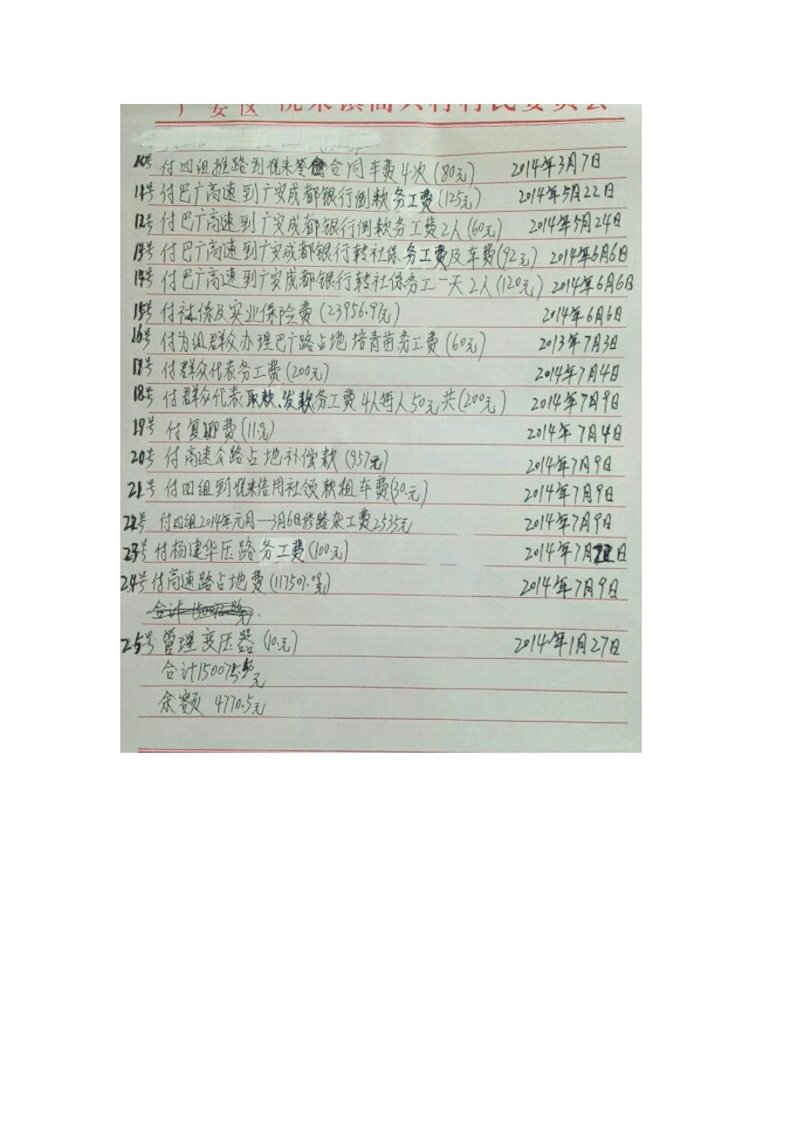 广安区 悦来镇高兴村村民委员会
10号 付四组推路到悦来签合同车费4次(80元) 2014年3月7日
11号 付巴广高速到广安成都银行倒款务工费(125元) 2014年5月22日
12号 付巴广高速到广安成都银行倒款务工费2人(60元) 2014年5月24日
13号 付巴广高速到广安成都银行转社保务工费及车费(92元) 2014年6月6日
14号 付巴广高速到广安成都银行转社保务工一天2人(120元) 2014年6月6日
15号 付社保及实业保险费(23956.9元) 2014年6月6日
16号 付为组群众办理巴广路占地培青苗务工费(60元) 2013年7月3日
17号 付群众代表务工费(200元) 2014年7月4日
18号 付群众代表取款、发款务工费4人每人50元共(200元) 2014年7月9日
19号 付复印费(11元) 2014年7月4日
20号 付高速公路占地补偿款(957元) 2014年7月9日
21号 付四组到悦来信用社领款租车费(30元) 2014年7月9日
22号 付四组2014年元月—3月6日修路杂工费2535元 2014年7月9日
23号 付杨建华压路务工费(100元) 2014年7月 日
24号 付高速路占地费 2014年7月9日
合计
25号 管理变压器(10元) 2014年1月27日
合计 元
余额 4770.5元